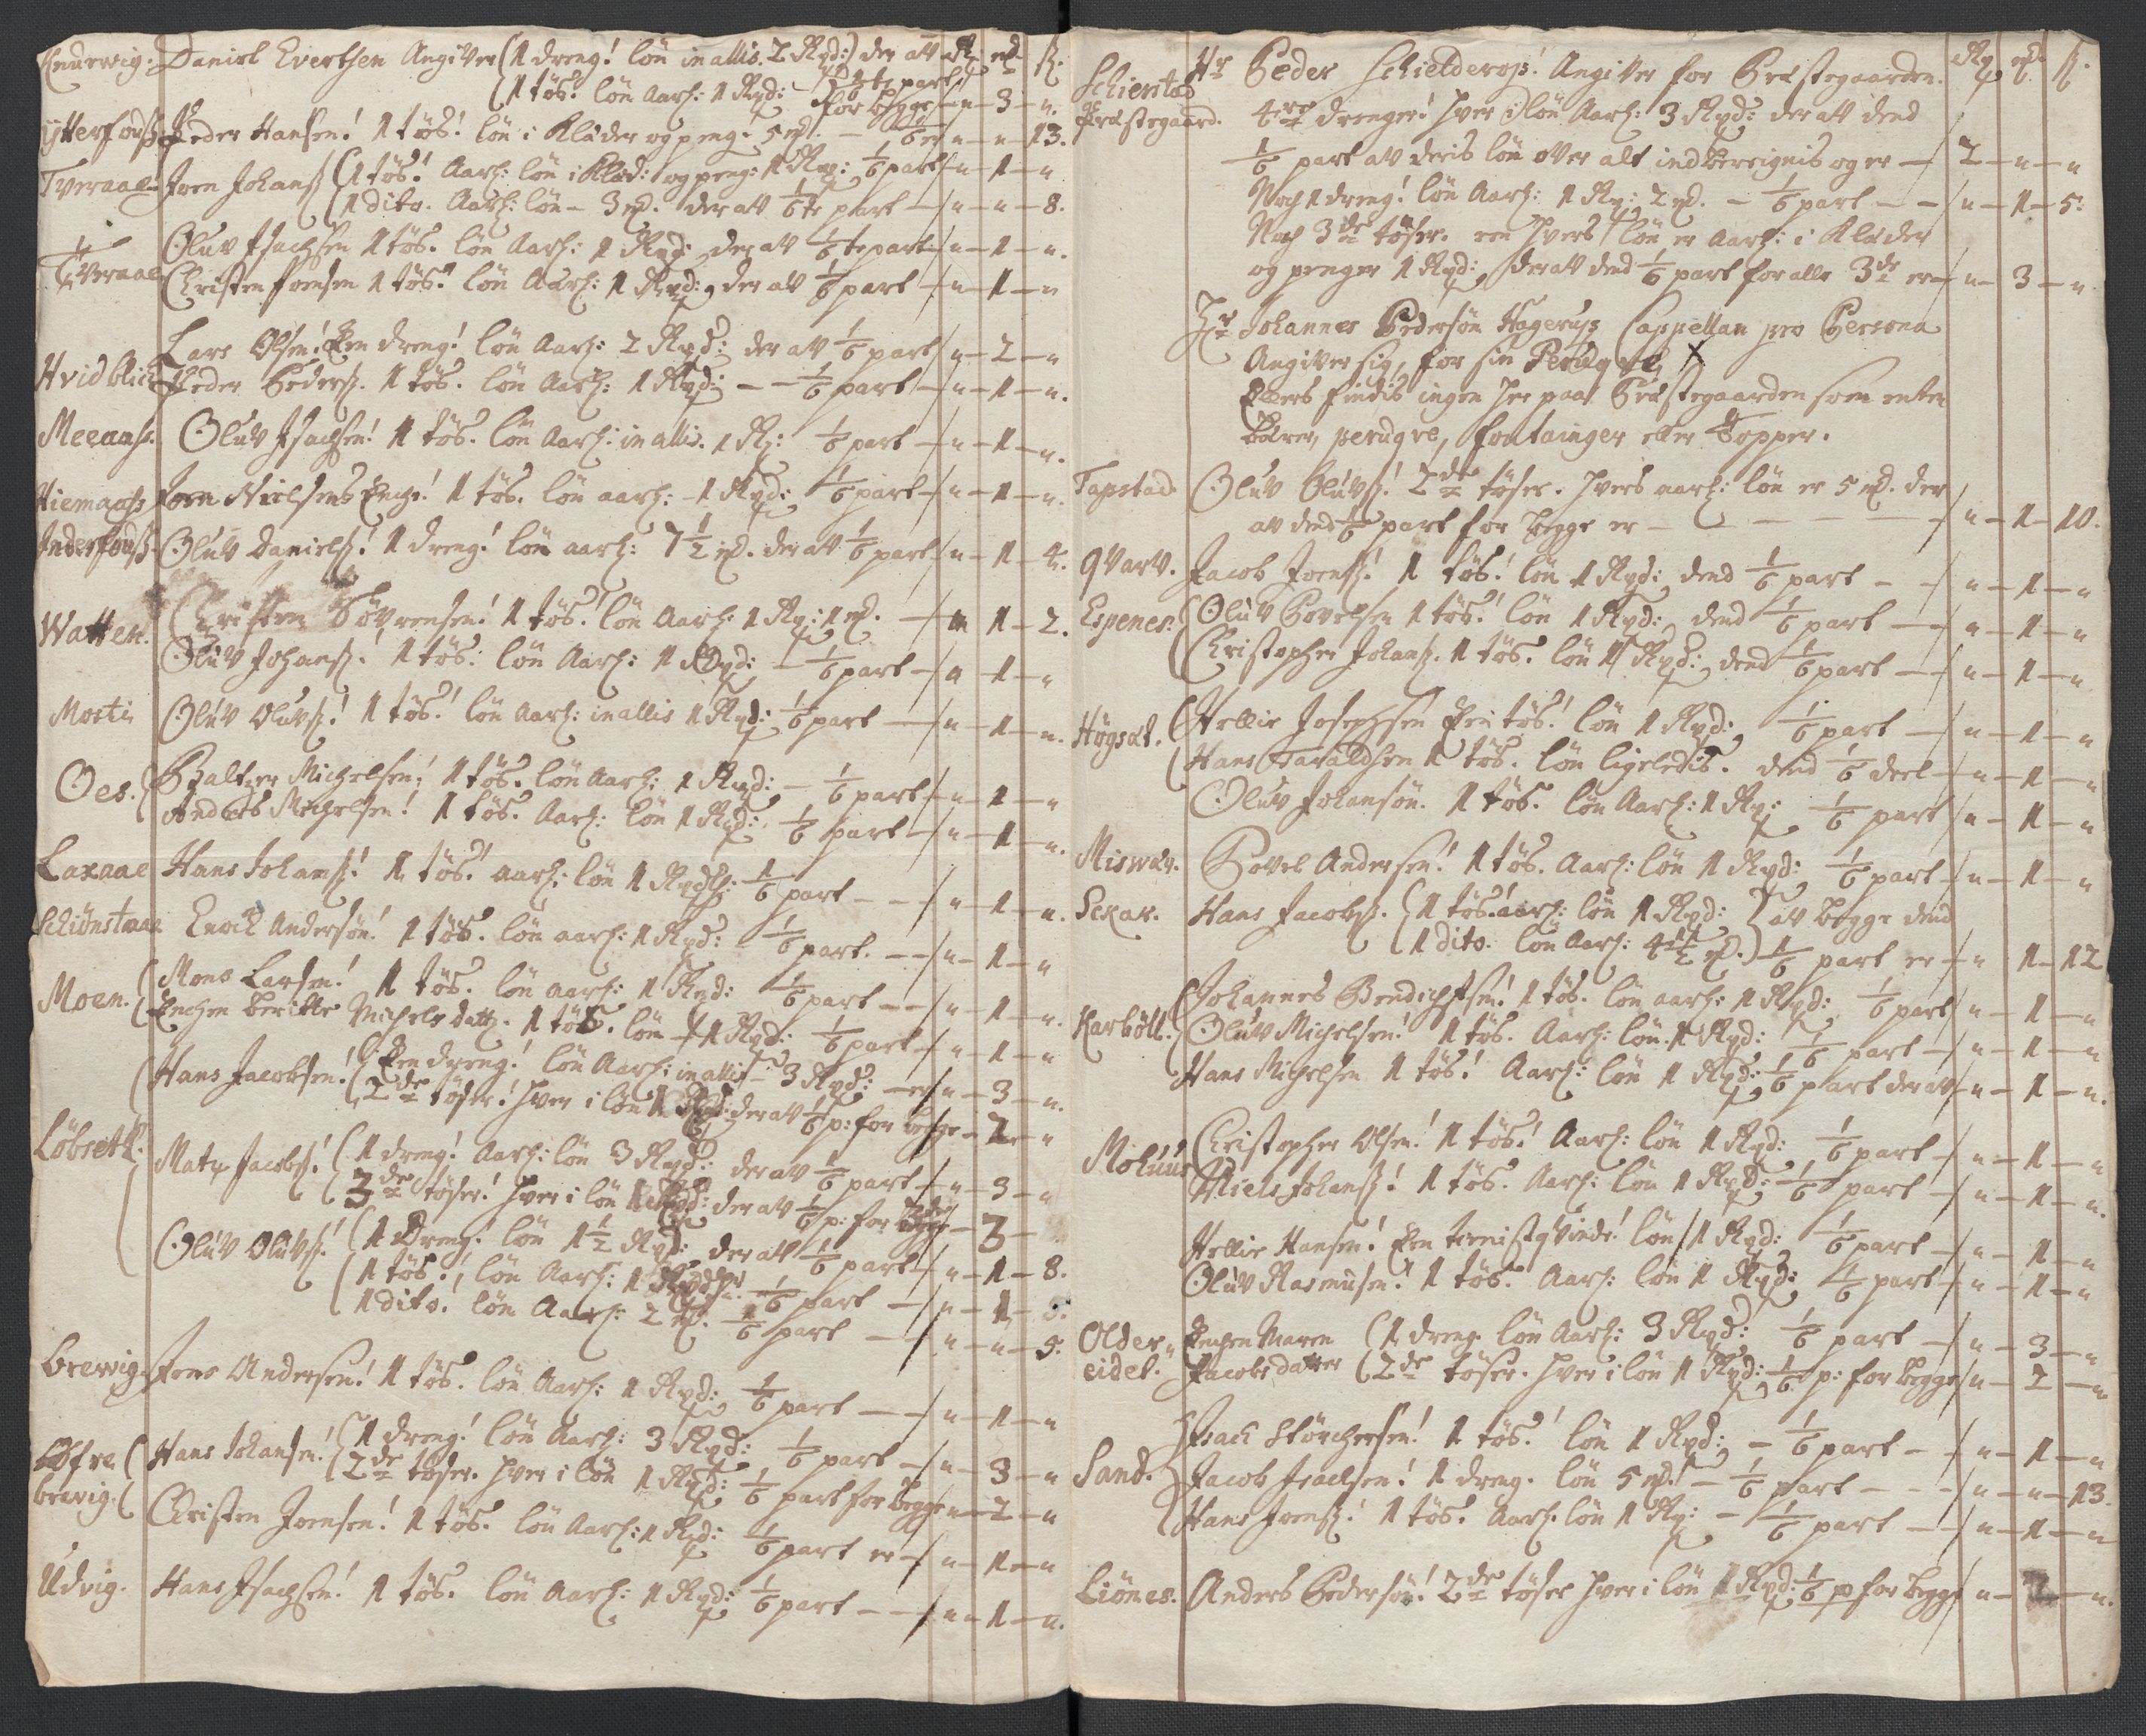 Knurwig. Daniel Evertsen Angiver (1 dreng! lön in allis. 2 Rdr:) der av Rdr mk ß.
(1 tös! lön Aarl: 1 Rdr: 1/6te part for begge - n - 3 - n.
Ytterfouß Peder Hansen! 1 tös! lön i Klæder og peng: 5 mk. - 1/6 er n - n - 13.
Tveraae Joen Johanß (1 tös! Aarl: lön i Klæd: og peng: 1 Rdr: 1/6 part - n - 1 - n
(1 dito. Aarl: lön - 3 mk. der av 1/6te part - n - n - 8.
Oluv Isachsen 1 tös. lön Aarl: 1 Rdr: der av 1/6te part - n - 1 - n.
Tveraae Christen Joensen 1 tös! lön Aarl: 1 Rdr: der av 1/6 part - n - 1 - n
Lars Olsen! Een dreng! lön Aarl: 2 Rdr: der av 1/6 part n - 2 - n
Hvidblich Peder Pederß. 1 tös. lön Aarl: 1 Rdr: - - 1/6 part - n - 1 - n.
Meeaaß. Oluv Isachsen! 1 tös. lön Aarl: in allis. 1 Rdr: 1/6 part - n - 1 - n.
Hiemaaß Joen Nielsens Enche! 1 tös. lön aarl: - 1 Rdr: 1/6 part - n - 1 - n.
Inderfouß Oluv Danielß! 1 dreng! lön aarl: 7 1/2 mk. der av 1/6 part n - 1 - 4.
Watten. Christen Sövrensen! 1 tös! lön Aarl: 1 Rdr: 1 mk. - n 1 - 2.
Oluv Johanß! 1 tös: lön Aarl: 1 Rdr: - 1/6 part - n - 1 - n
Mosti Oluv Oluvß! 1 tös! lön Aarl: in allis 1 Rdr: 1/6 part - n - 1 - n.
Oes. (Baltzer Michelsen! 1 tös. lön Aarl: 1 Rdr: - 1/6 part - n - 1 - n
Anders Michelsen! 1 tös. Aarl: lön 1 Rdr: 1/6 part - n - 1 - n.
Laxaae Hans Johanß! 1 tös! aarl: lön 1 Rdr: 1/6 part - - n - 1 - n.
Schiönstaae Enoch Andersön! 1 tös. lön aarl: 1 Rdr: 1/6 part. - - n - 1 - n
Moen. (Mons Larsen! 1 tös. lön aarl: 1 Rdr: 1/6 part - - n - 1 - n.
Enchen Beritte Michels datt. 1 tös. lön - 1 Rdr: 1/6 part - n - 1 - n
(Hans Jacobsen! (Een dreng! lön Aarl: in allis - 3 Rdr: - er n - 3 - n.
(2de töser! hver i lön 1 Rdr: der av 1/6 p: for begge - 2 - n
Löbsett. Mats Jacobß! (1 dreng! Aarl: lön 3 Rdr: der av 1/6 part - n - 3 - n
(3de töser! hver i lön 1 Rdr: der av 1/6 p: for - 3 -
Oluv Oluvß! (1 Dreng! lön 1 1/2 Rdr: der av 1/6 part - n - 1 - 8.
(1 tös!, lön Aarl: 1 Rdr: 1/6 part - n - 1 -
(1 dito! lön Aarl: 2 mk. 1/6 part - n - n - 5.
Brewig. Jens Andersen! 1 tös. lön Aarl: 1 Rdr: 1/6 part - - n - 1 - n
Öfre brevig. (Hans Johansen! (1 dreng! lön Aarl: 3 Rdr: 1/6 part - n - 3 - n
(2de töser. hver i lön 1 Rdr: 1/6 part for begge n - 2 - n
Christen Joensen! 1 tös. lön Aarl: 1 Rdr: 1/6 part er - n - 1 - n
Udvig. Hans Isachsen! 1 tös. lön Aarl: 1 Rdr: 1/6 part - - n - 1 - n.
Schierstad Præstegaard. Hr Peder Schielderop! Angiver for Præstegaarden. Rdr mk ß.
4re drenger! hver i lön Aarl: 3 Rdr: der av dend
1/6 part av deris lön over alt indbereignis og er - 2 - n - n
Noch 1 dreng! lön Aarl: 1 Rdr: 2 mk. - 1/6 part - - n - 1 - 5.
Noch 3de töser. een hvers lön er Aarl: i Klæder
og penger 1 Rdr: der av dend 1/6 part for alle 3de er - n - 3 - n
Hr Johannes Pedersön Hagerup Cappellan pro Persona
Angiver sig, for sin Peruqve X
Ellers findis ingen her paa Præstegaarden som enten
bærer, peruqve, fontainger eller Topper.
Tapstad Oluv Oluvß! 2de töser. hvers aarl: lön er 5 mk. der
av dend 1/6 part for begge er - - - - n - 1 - 10.
Qvarv. Jacob Joenß! 1 tös! lön 1 Rdr: dend 1/6 part - - n - 1 - n
Espenes. (Oluv Povelsen 1 tös! lön 1 Rdr: dend 1/6 part - n - 1 - n
(Christopher Johanß. 1 tös. lön 1 Rdr: dend 1/6 part - n - 1 - n
Högsæt. (Hellie Josephsen Een tös! lön 1 Rdr: 1/6 part - n - 1 - n
(Hans Haraldsen 1 tös. lön ligeledis. dend 1/6 deel - n - 1 - n
Oluv Johansön. 1 tös. lön Aarl: 1 Rdr: 1/6 part n - 1 - n
Miswær. Povel Andersen! 1 tös. Aarl: lön 1 Rdr: 1/6 part - n - 1 - n
Sexar. Hans Jacobß. (1 tös! aarl: lön 1 Rdr: } av begge dend
(1 dito. lön Aarl: 4 1/2 mk.) 1/6 part er - n 1 - 12
Karböll. (Johannes Bendichsen! 1 tös. lön aarl: 1 Rdr: 1/6 part n - 1 - n
Oluv Michelsen! 1 tös. Aarl: lön. 1 Rdr: 1/6 part - n - 1 - n
Hans Michelsen 1 tös! Aarl: lön 1 Rdr: 1/6 part der av - n - 1 - n.
Mohuus Christopher Olsen! 1 tös! Aarl: lön 1 Rdr: 1/6 part - n - 1 - n
Niels Johanß! 1 tös. Aarl: lön 1 Rdr: - 1/6 part - n - 1 - n.
Hellie Hansen! Een tienistqvinde! lön 1 Rdr: 1/6 part - n - 1 - n
Oluv Rasmusen! 1 tös. Aarl: lön 1 Rdr: 1/6 part - n - 1 - n
Older- eidet. Enchen Maren (1 dreng. lön Aarl: 3 Rdr: 1/6 part - n - 3 - n
Jacobs datter (2de töser. hver i lön 1 Rdr: 1/6 p: for begge n - 2 - n
Sand. Isach Störchersen! 1 tös! lön 1 Rdr: - 1/6 part - - n - 1 - n
Jacob Isachsen! 1 dreng. lön 5 mk! - 1/6 part - - - n - n - 13.
Hans Joenß! 1 tös. Aarl: lön 1 Rdr: - 1/6 part - - n - 1 - n
Liönes. Anders Pedersön! 2de töser hver i lön 1 Rdr: 1/6 p for begge n - 2 - n.